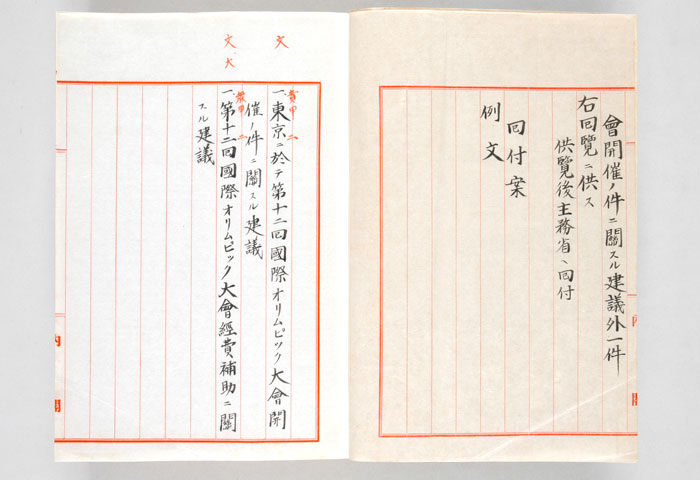 會開催ノ件ニ關スル建議外一件
右回覽ニ供ス
供覽後主務省ヘ回付
回付案
例文
文
一、東京ニ於テ第十二回國際オリムピツク大會開
催ノ件ニ關スル建議
文、大
一、第十二回國際オリムピツク大會經費補助ニ關
スル建議
内
閣